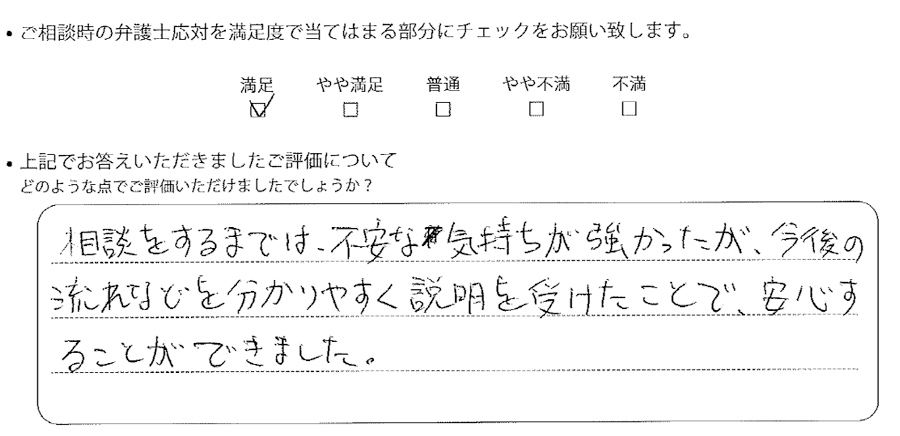 • ご相談時の弁護士応対を満足度で当てはまる部分にチェックをお願い致します。
満足 やや満足 普通 やや不満 不満
☑ □ □ □ □
• 上記でお答えいただきましたご評価について
どのような点でご評価いただけましたでしょうか？
相談をするまでは、不安な気持ちが強かったが、今後の
流れなどを分かりやすく説明を受けたことで、安心す
ることができました。